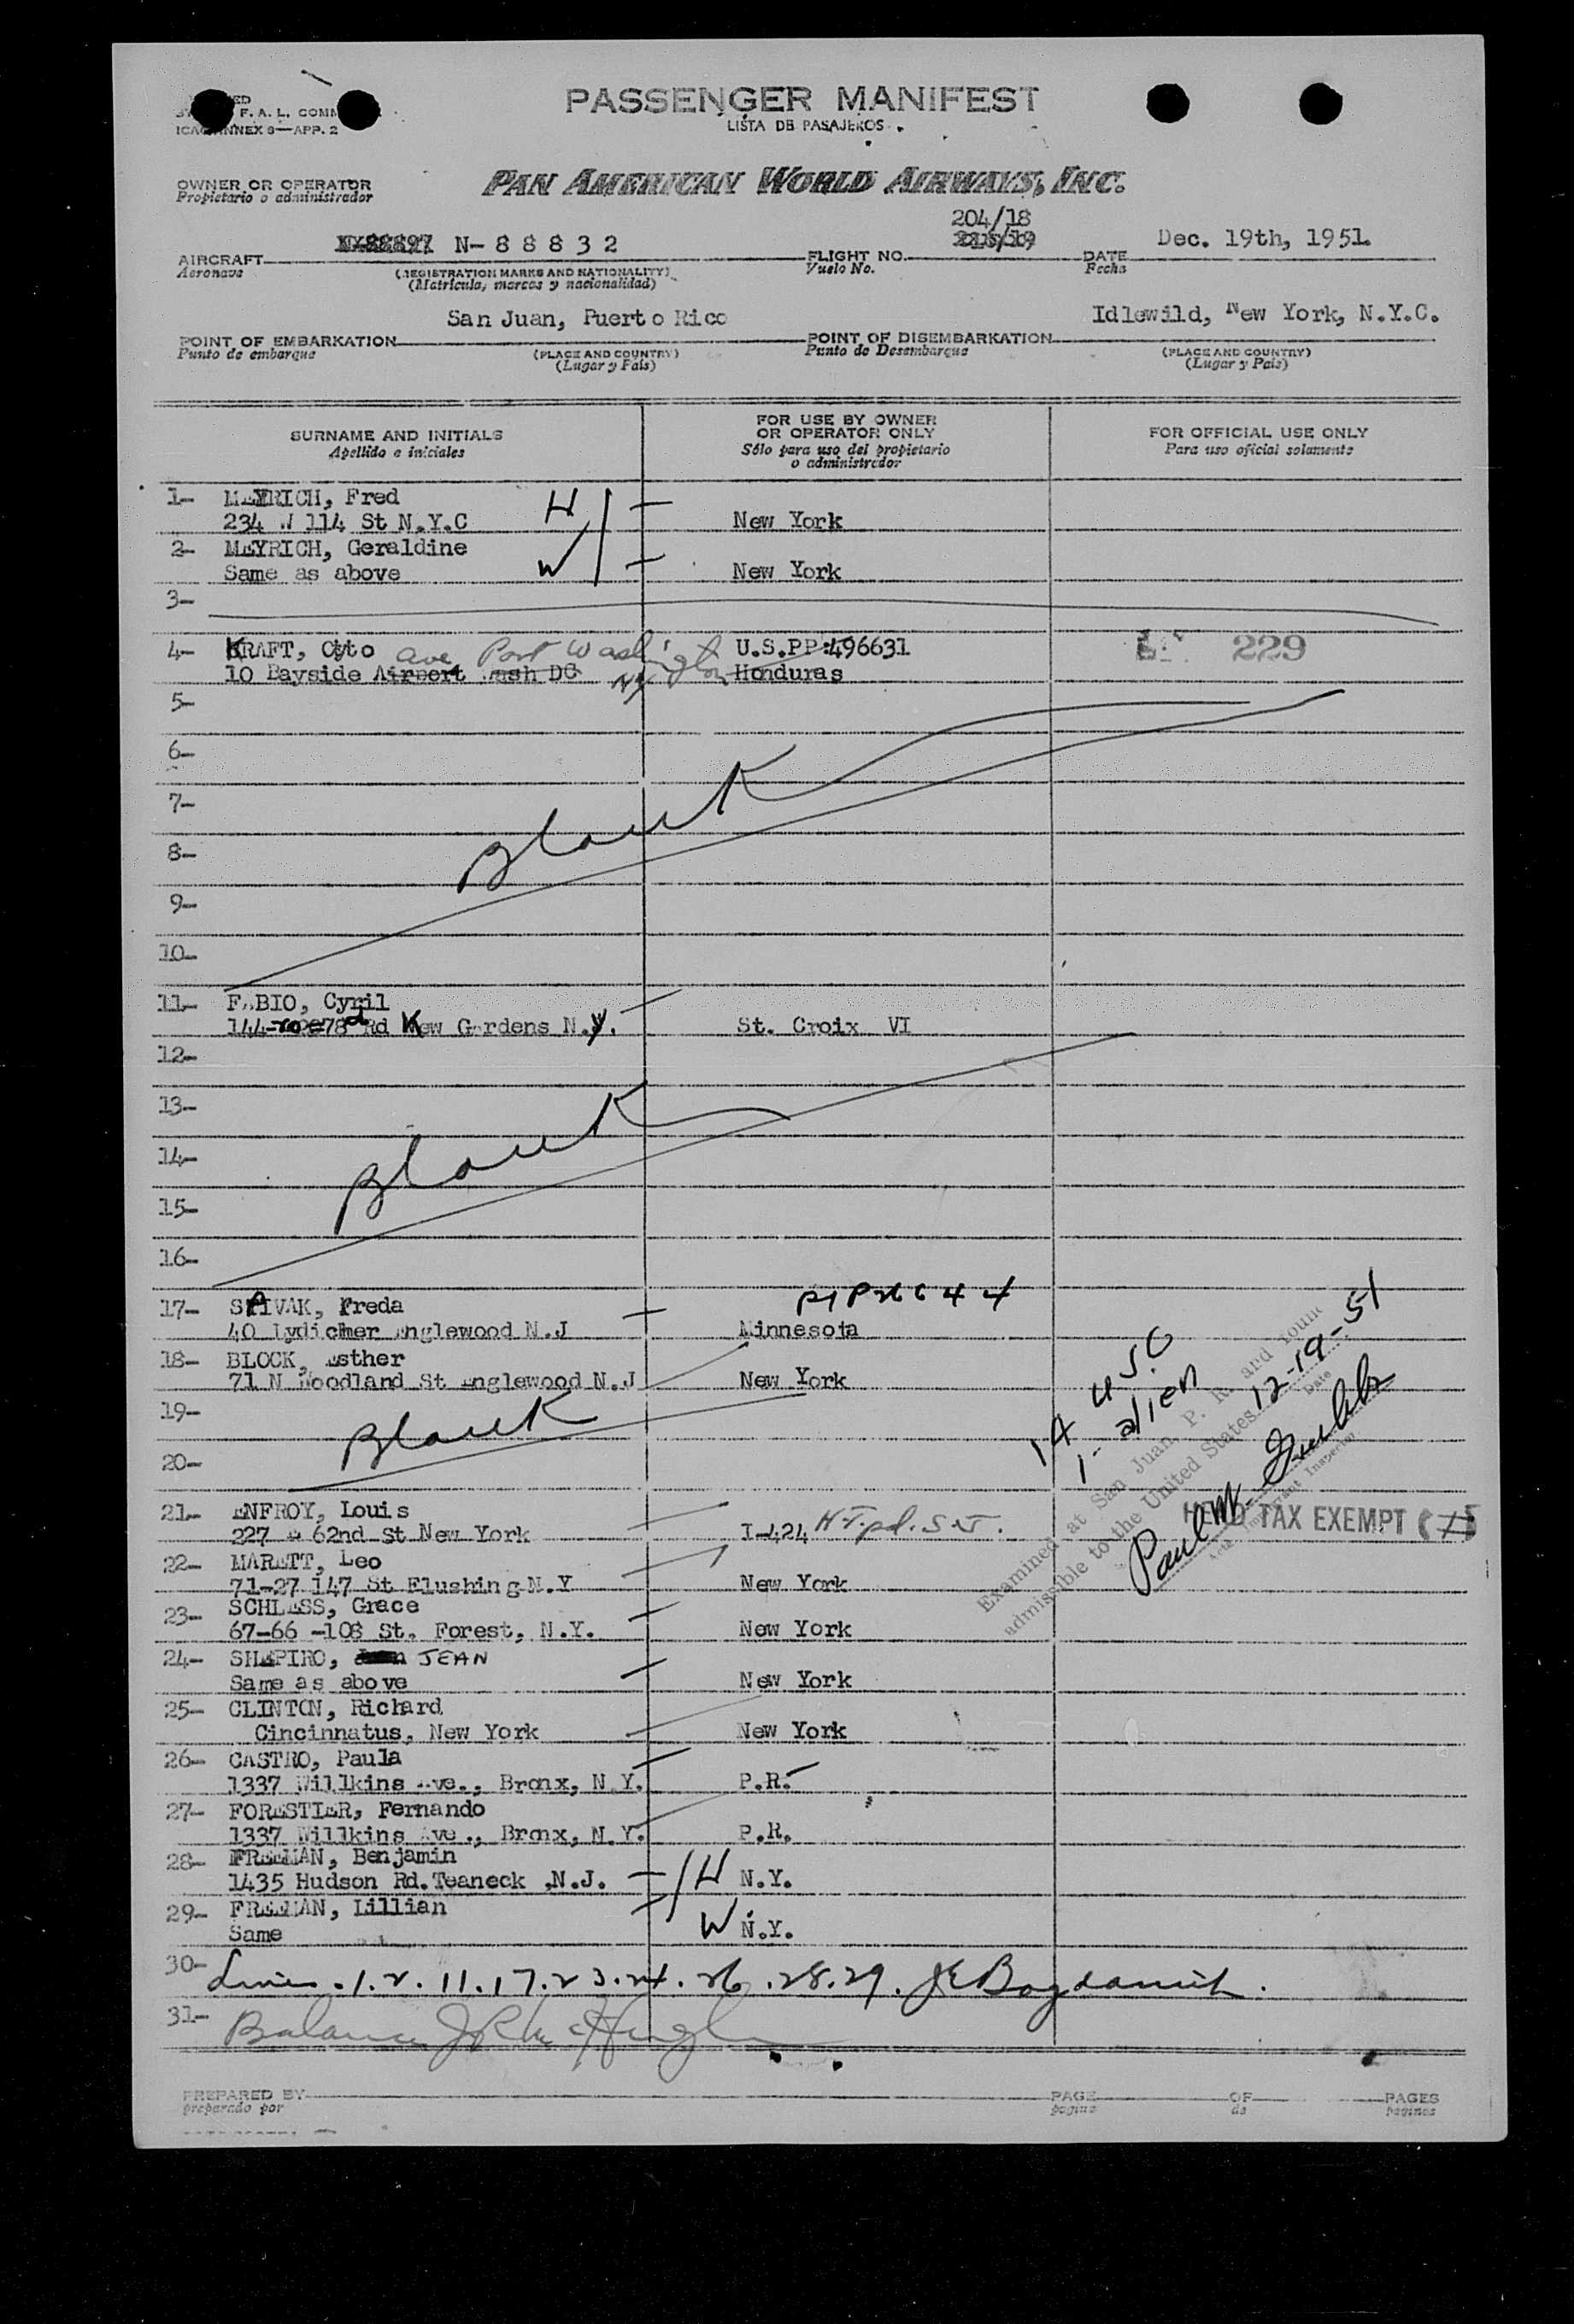 F. A. L. COMM
ICAO ANNEX 9—APP. 2
PASSENGER MANIFEST
LISTA DE PASAJEROS
OWNER OR OPERATOR
Propietario o administrador
PAN AMERICAN WORLD AIRWAYS, INC.
204/18
N-88832
Dec. 19th, 1951.
AIRCRAFT
Aeronave
(REGISTRATION MARKS AND NATIONALITY)
(Matricula, marcas y nacionalidad)
FLIGHT NO.
Vuelo No.
DATE
Fecha
San Juan, Puerto Rico
Idlewild, New York, N.Y.C.
POINT OF EMBARKATION
Punto de embarque
(PLACE AND COUNTRY)
(Lugar y País)
POINT OF DISEMBARKATION
Punto de Desembarque
(PLACE AND COUNTRY)
(Lugar y País)
SURNAME AND INITIALS
Apellido e iniciales
FOR USE BY OWNER
OR OPERATOR ONLY
Sólo para uso del propietario
o administrador
FOR OFFICIAL USE ONLY
Para uso oficial solamente
1- MEYRICH, Fred H
234 W 114 St N.Y.C New York
2- MEYRICH, Geraldine
Same as above W New York
3-
4- KRAFT, Otto ave Port Washington U.S.PP:496631 229
10 Bayside Airport Wash DC NY Honduras
5-
6-
7-
Blank
8-
9-
10-
11- FABIO, Cyril
144- 78 Rd Kew Gardens N.Y. St. Croix VI
12-
13-
Blank
14-
15-
16-
17- SPIVAK, Freda
40 Lydicher Englewood N.J Minnesota
18- BLOCK, Esther
71 N Woodland St Englewood N.J New York
19-
Blank
20-
14 USC
1- alien
Examined at San Juan, P. R. and found
admissible to the United States 12-19-51
Date
Immigrant Inspector
HEAD TAX EXEMPT
21- ENFROY, Louis
227 62nd St New York I-424 H.T.pd.
22- MARETT, Leo
71-27 147 St Flushing N.Y New York
23- SCHLESS, Grace
67-66 -108 St. Forest, N.Y. New York
24- SHAPIRO, JEAN
Same as above New York
25- CLINTON, Richard
Cincinnatus, New York New York
26- CASTRO, Paula
1337 Willkins Ave., Bronx, N.Y. P.R.
27- FORESTIER, Fernando
1337 Willkins Ave., Bronx, N.Y. P.R.
28- FREEMAN, Benjamin
1435 Hudson Rd. Teaneck ,N.J. H N.Y.
29- FREEMAN, Lillian
Same W N.Y.
30- Lines .1.2.11.17.23.24.26.28.29.
31- Balance
PREPARED BY
preparado por
PAGE
pagina
OF
de
PAGES
paginas